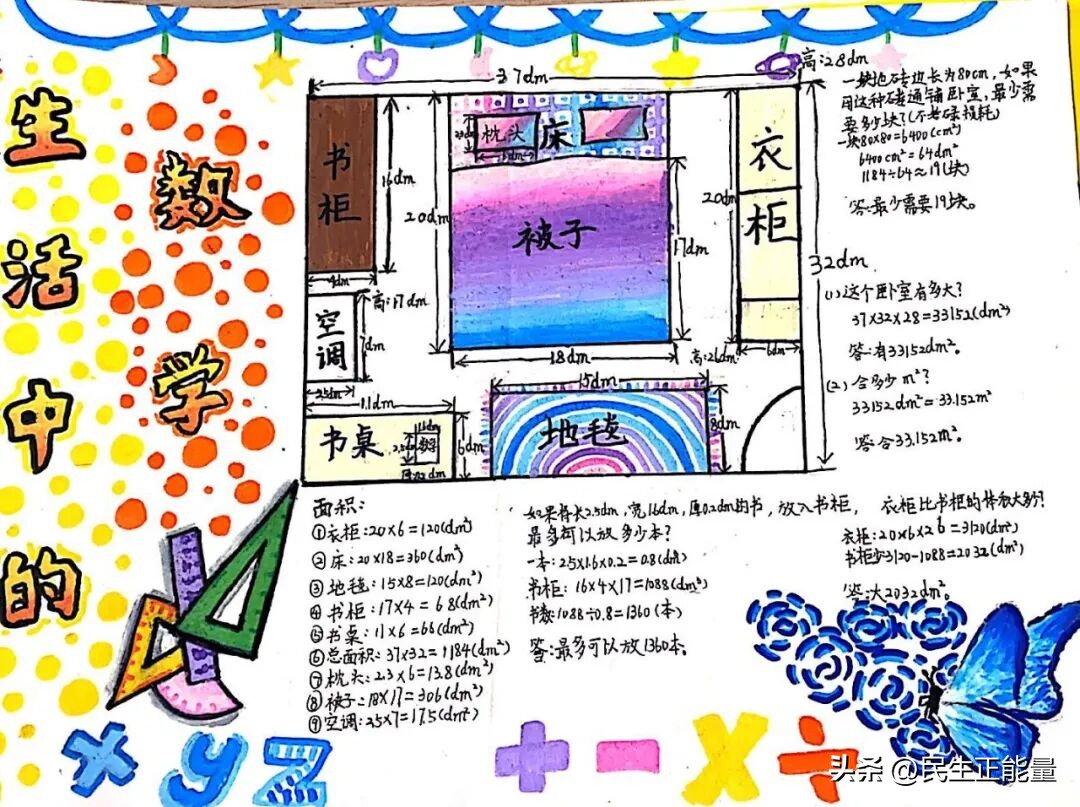 生活中的
数学
37dm
高:28dm
书柜
16dm
4dm
20dm
枕头
床
被子
17dm
18dm
衣柜
20dm
6dm
高:26dm
32dm
高:17dm
空调
7dm
2.5dm
11dm
书桌
6dm
15dm
地毯
8dm
一块地砖边长为80cm,如果
用这种砖通铺卧室,最少需
要多少块?(不考虑损耗)
一块80×80=6400(cm²)
6400cm²=64dm²
1184÷64≈19(块)
答:最少需要19块。
(1)这个卧室有多大?
37×32×28=33152(dm³)
答:有33152dm³。
(2)合多少m³?
33152dm³=33.152m³
答:合33.152m³。
面积:
①衣柜:20×6=120(dm²)
②床:20×18=360(dm²)
③地毯:15×8=120(dm²)
④书柜:17×4=68(dm²)
⑤书桌:11×6=66(dm²)
⑥总面积:37×32=1184(dm²)
⑦枕头:2.3×6=13.8(dm²)
⑧被子:18×17=306(dm²)
⑨空调:2.5×7=17.5(dm²)
如果将长2.5dm,宽1.6dm,厚0.2dm的书,放入书柜,
最多可以放多少本?
一本:2.5×1.6×0.2=0.8(dm³)
书柜:16×4×17=1088(dm³)
书数:1088÷0.8=1360(本)
答:最多可以放1360本。
衣柜比书柜的体积大多少?
衣柜:20×6×26=3120(dm³)
3120-1088=2032(dm³)
答:大2032dm³。
x y z
+ − × ÷
头条 @民生正能量